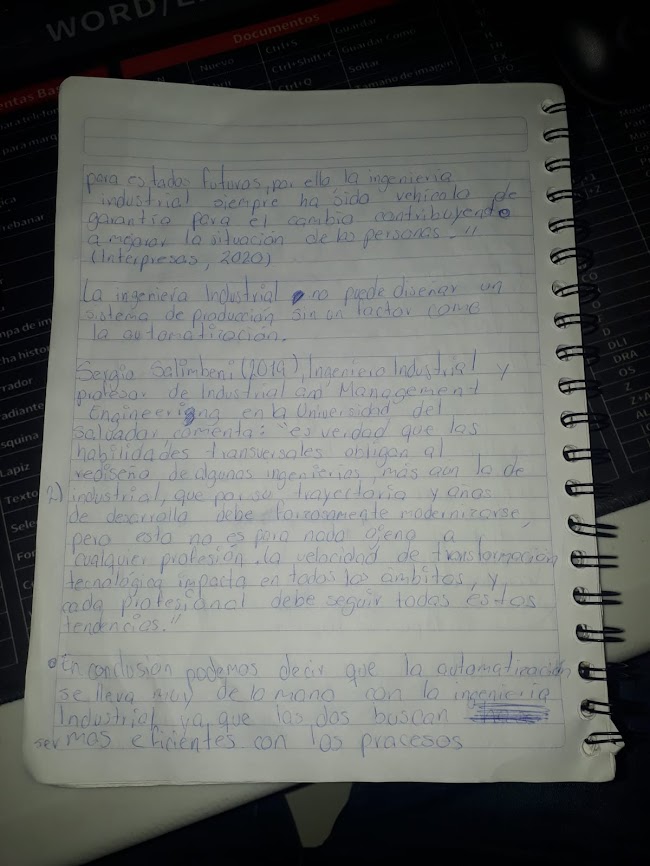 WORD/E
Documentos
Nuevo Ctrl+S Guardar
Ctrl+Shift+C Guardar Como
Ctrl+Q Soltar
Tamaño de imagen
para estados futuros, por ello la ingeniería
industrial siempre ha sido vehiculo de
garantía para el cambio contribuyendo
a mejorar la situación de las personas."
(Interpresas, 2020)
La ingeniería Industrial no puede diseñar un
sistema de producción sin un factor como
la automatización.
Sergio Salimbeni (2019), Ingeniero Industrial y
profesor de Industrial an Management
Engineering en la Universidad del
Salvador, comenta: "es verdad que las
habilidades transversales obligan al
rediseño de algunas ingenierías, más aun la de
2) industrial, que por su trayectoria y años
de desarrollo debe forzosamente modernizarse,
pero esto no es para nada ajeno a
cualquier profesión. la velocidad de transformación
tecnológica impacta en todos los ámbitos, y
cada profesional debe seguir todas estas
tendencias."
En conclusión podemos decir que la automatización
se lleva muy de la mano con la ingeniería
Industrial, ya que las dos buscan
ser mas eficientes con los procesos